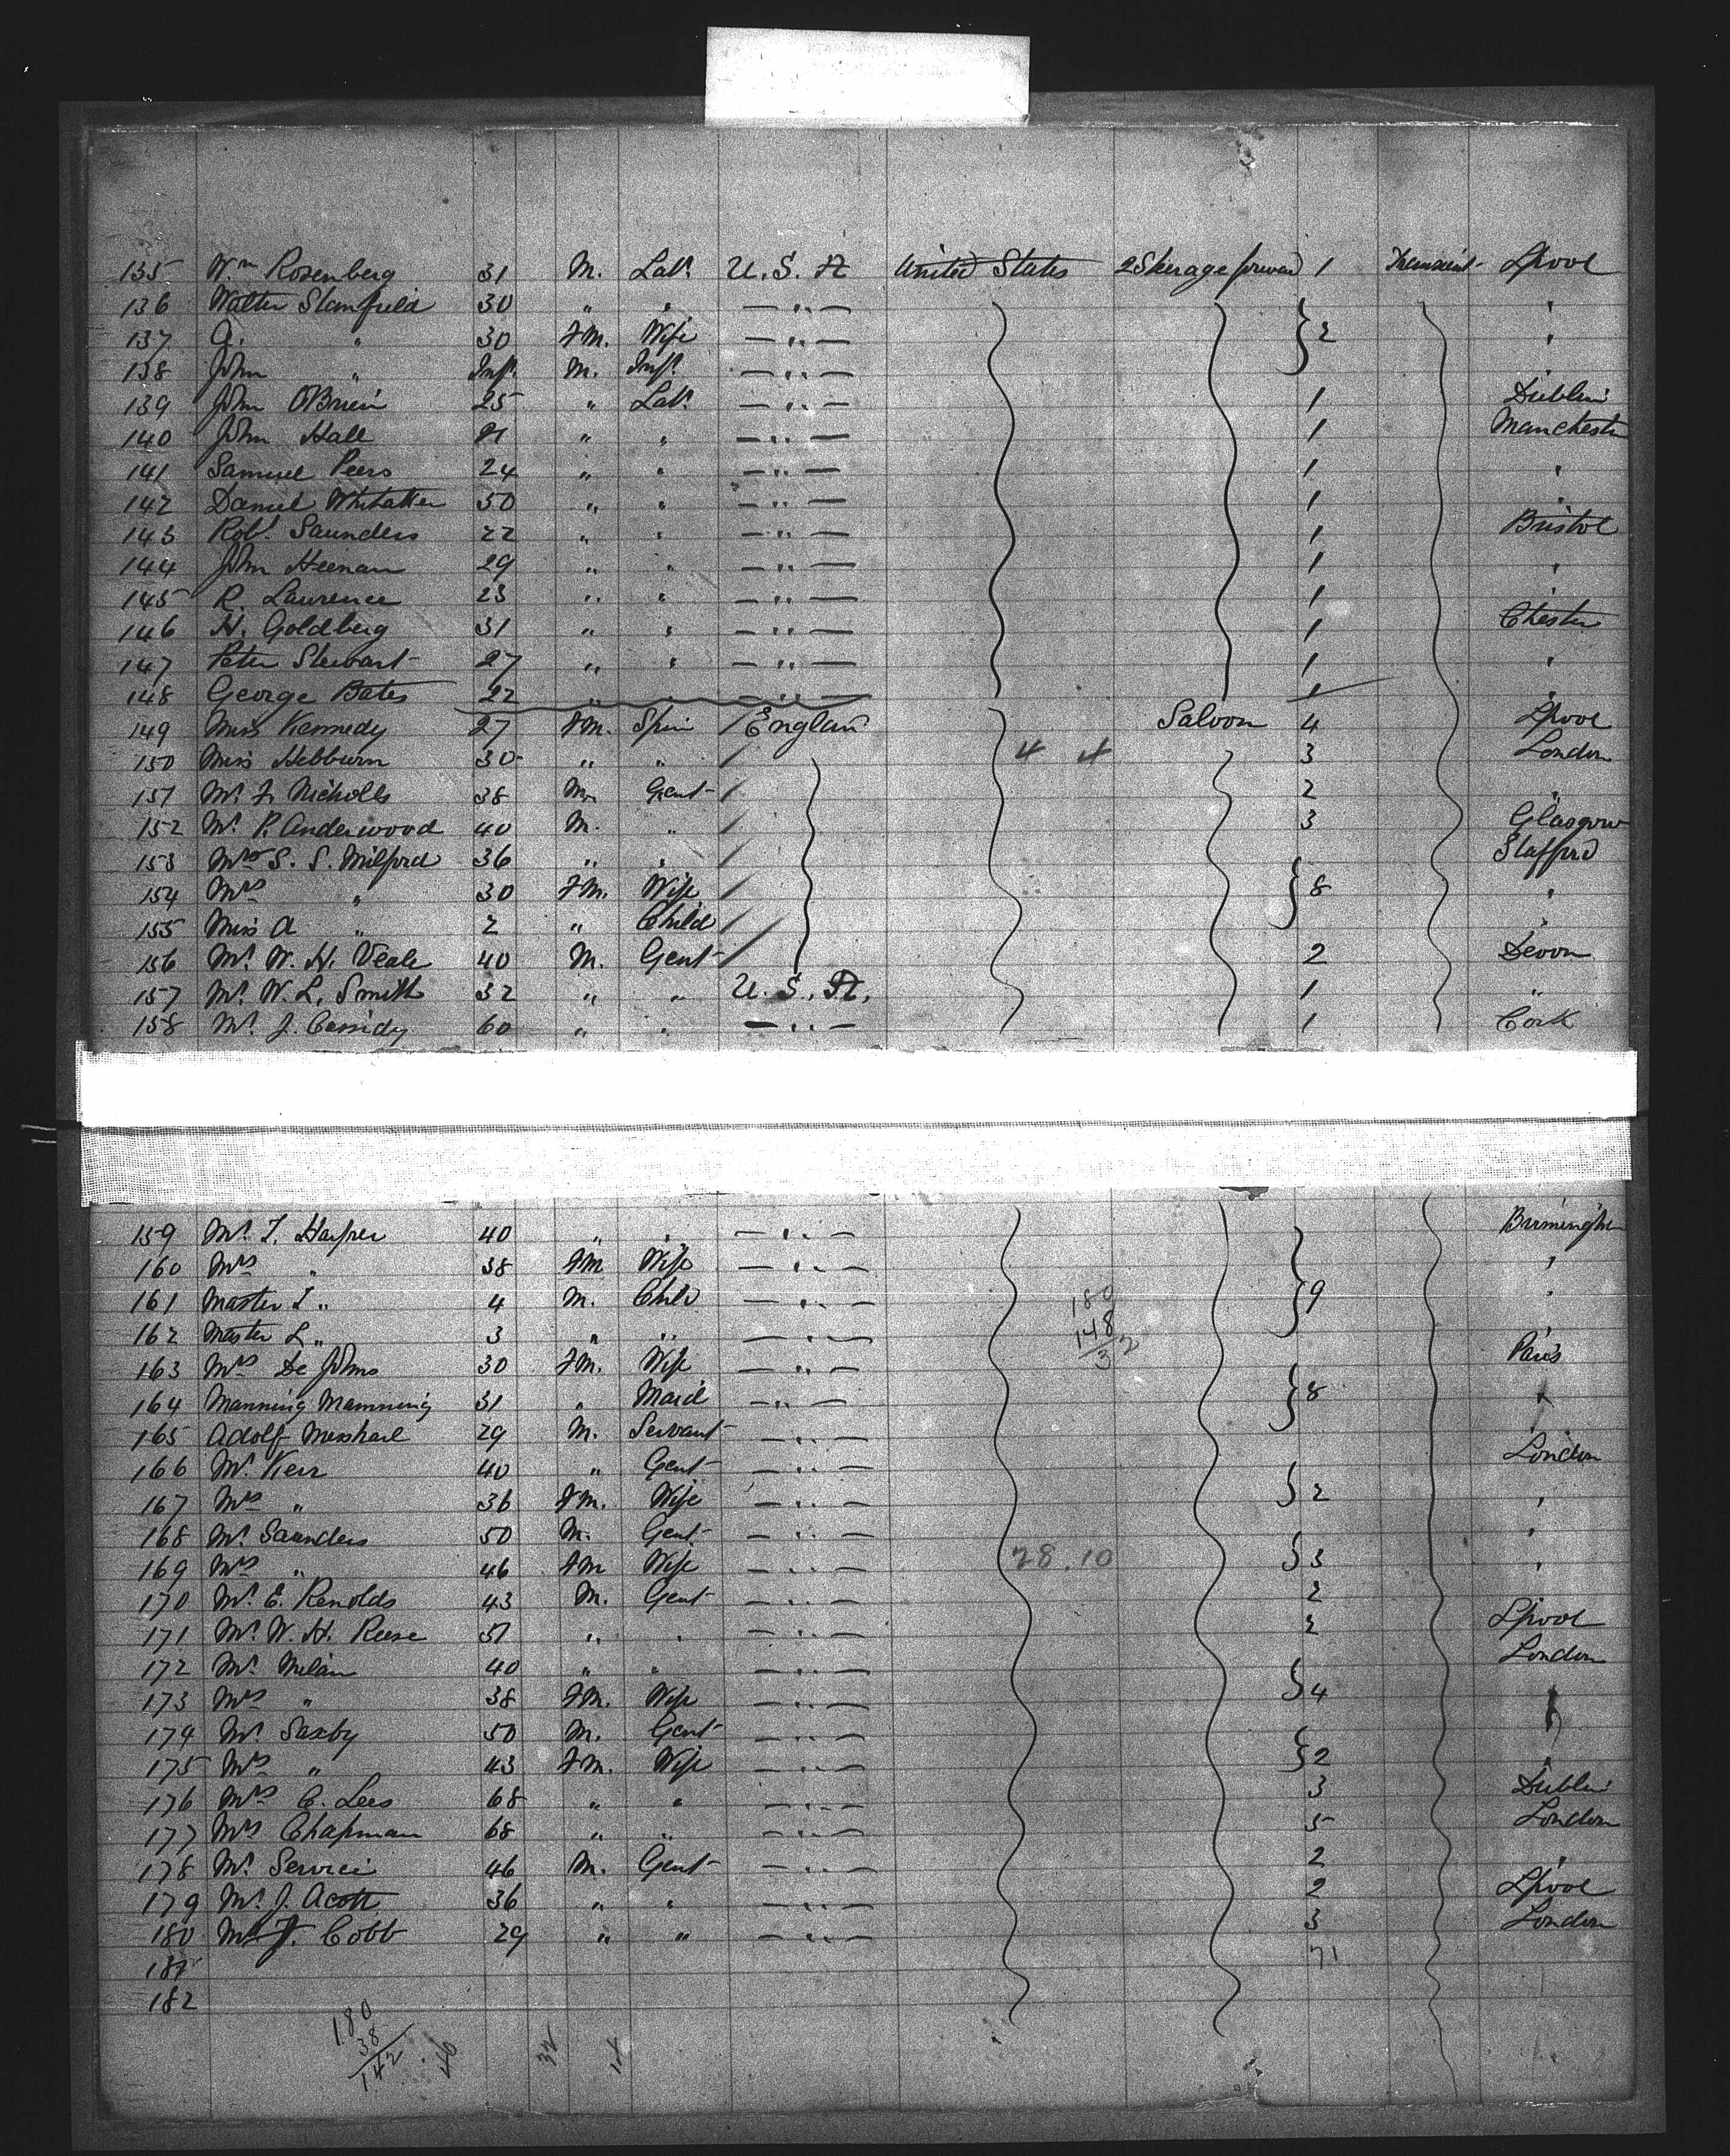 135 Wm Rosenberg 31 M. Labr U. S. A United States 2 Steerage forward 1 Transient L'pool
136 Walter Stanfield 30 " " — " — "
137 A. " 30 Fm. Wife — " — } 2 "
138 John " Inft. M. Inft. — " —
139 John O'Brien 25 " Labr — " — 1 Dublin
140 John Hall 21 " " — " — 1 Manchester
141 Samuel Peers 24 " " — " — 1 "
142 Daniel Whitaker 50 " " — " — 1 "
143 Robt Saunders 22 " " — " — 1 Bristol
144 John Heenan 29 " " — " — 1 "
145 R. Laurence 23 " " — " — 1
146 H. Goldberg 31 " " — " — 1 Chester
147 Peter Stewart 27 " " — " — 1 "
148 George Bates 22 " " — " — 1 "
149 Miss Kennedy 27 Fm. Spin England Saloon 4 L'pool
150 Miss Hebburn 30 " " 4 4 3 London
151 Mr. F. Nicholls 38 M. Gent 2 "
152 Mr. P. Anderwood 40 M. " 3 Glasgow
153 Mr S. S. Milford 36 " " Stafford
154 Mrs " 30 Fm. Wife } 8 "
155 Miss A " 2 " Child "
156 Mr. W. H. Veale 40 M. Gent 2 Devon
157 Mr. W. L. Smith 32 " " U. S. A. 1 "
158 Mr. J. Cassidy 60 " " — " — 1 Cork
159 Mr. T. Harper 40 " " — " — Birmingham
160 Mrs " 38 Fm Wife — " — "
161 Master I " 4 M. Child — " — 180 } 9 "
162 Master L " 3 " " — " — 148
32
163 Mrs De Johns 30 Fm. Wife — " — Paris
164 Manning Manning 31 " Maid — " — } 8 "
165 Adolf 29 M. Servant — " — "
166 Mr. Kerr 40 " Gent — " — London
167 Mrs " 36 Fm. Wife — " — } 2 "
168 Mr. Saunders 50 M. Gent — " — "
169 Mrs " 46 Fm Wife — " — 28.10 } 3 "
170 Mr. E. Renolds 43 M. Gent — " — 2
171 Mr. W. H. Reese 51 " " — " — 2 L'pool
172 Mr. Milan 40 " " — " — London
173 Mrs " 38 Fm. Wife — " — } 4 "
174 Mr. Saxby 50 M. Gent — " — "
175 Mrs " 43 Fm. Wife — " — } 2
176 Mrs C. Lees 68 " " — " — 3 Dublin
177 Mrs Chapman 68 " " — " — 5 London
178 Mr. 46 M. Gent — " — 2 "
179 Mr. J. Acott 36 " " — " — 2 L'pool
180 Mr F. Cobb 29 " " — " — 3 London
181 71
182
180
38
142 46 32 14